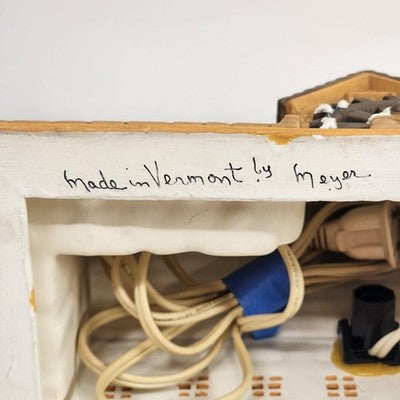 made in Vermont by Meyer